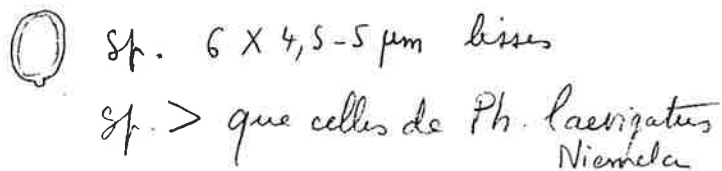 Sp. 6 X 4,5-5 µm lisses
Sp. > que celles de Ph. laevigatus
Niemela